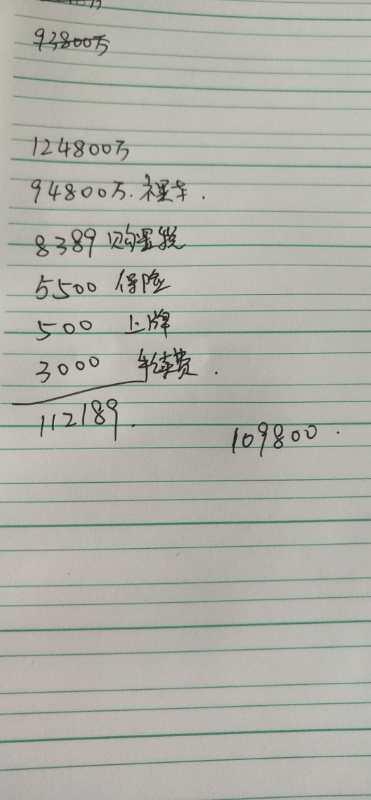 93800万
124800万
94800万. 裸车.
8389 购置税
5500 保险
500 上牌
3000 手续费.
112189.
109800.